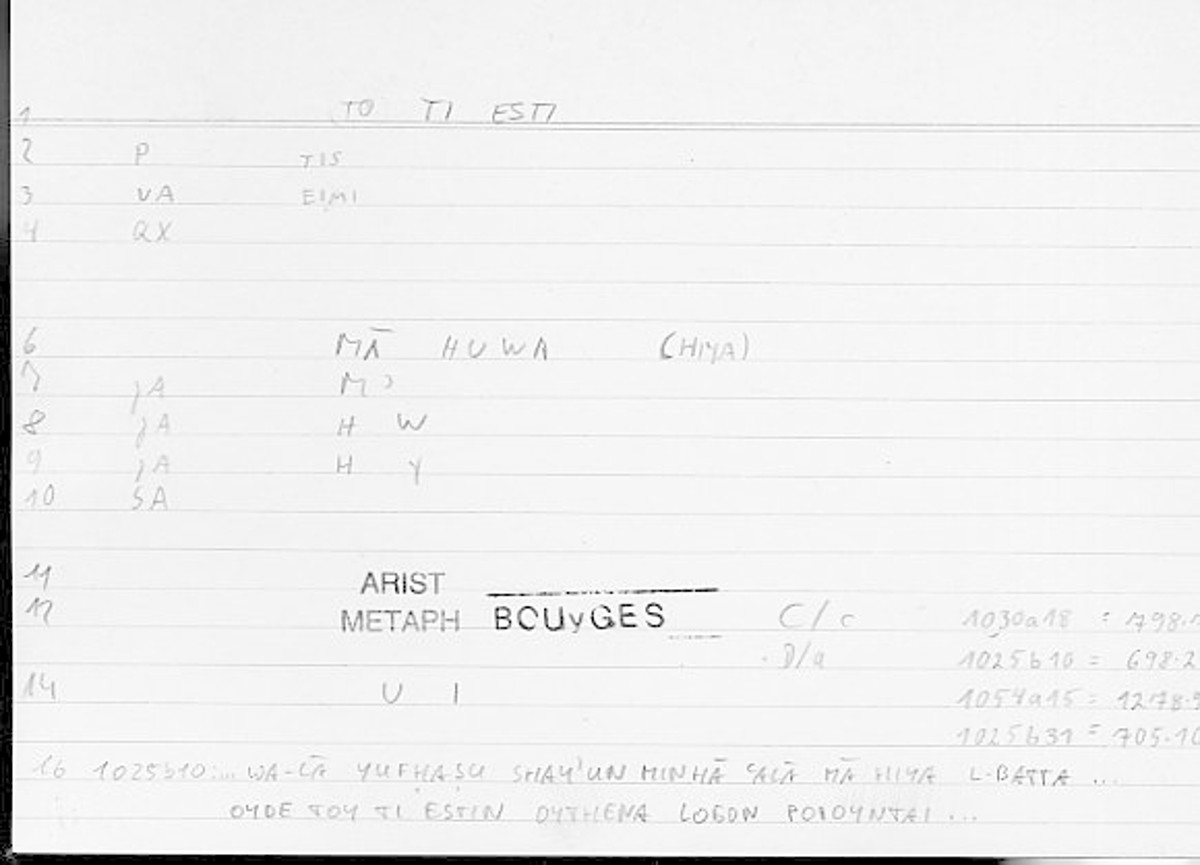 1 TO TI ESTI
2 P TIS
3 VA EIMI
4 QX
6 MĀ HUWA (HIYA)
7 jA M ʾ
8 jA H W
9 jA H Y
10 SA
11 ARIST
12 METAPH BOUyGES C/c 1030a18 = 798.
D/a 1025b10 = 698.2
14 U I 1054a15 = 1278.
1025b31 = 705.10
16 1025b10:... WA-LĀ YUFḤAṢU SHAYʾUN MINHĀ ʿALĀ MĀ HIYA L-BATTA ...
OYDE TOY TI ESTIN OYTHENA LOGON POIOYNTAI ...